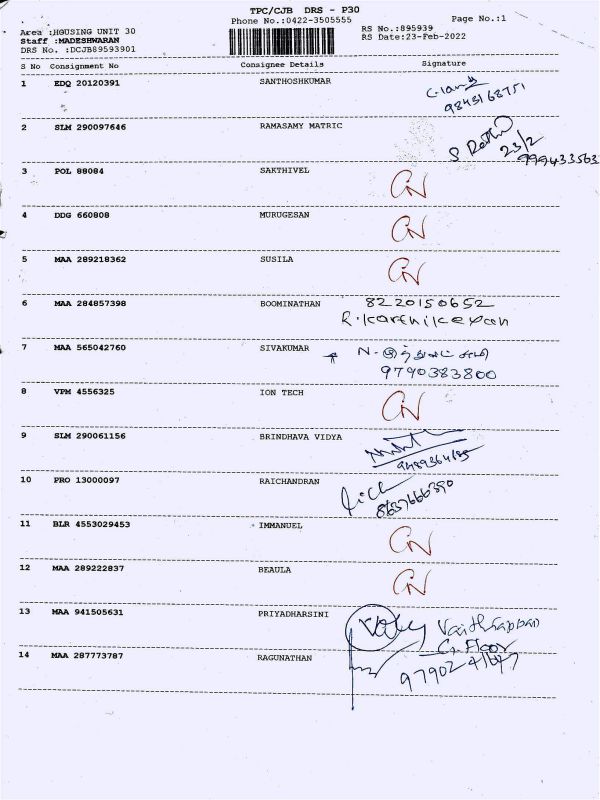 TPC/CJB DRS - P30
Phone No.:0422-3505555
Page No.:1
Area :HGUSING UNIT 30
RS No.:895939
Staff :MADESHWARAN
RS Date:23-Feb-2022
DRS No. :DCJB89593901
S No Consignment No Consignee Details Signature
1 EDQ 20120391 SANTHOSHKUMAR
9843168751
2 SLM 290097646 RAMASAMY MATRIC
23/2
999433563
3 POL 88084 SAKTHIVEL
4 DDG 660808 MURUGESAN
5 MAA 289218362 SUSILA
6 MAA 284857398 BOOMINATHAN 8220150652
R.Karthikeyan
7 MAA 565042760 SIVAKUMAR
9790383800
8 VPM 4556325 ION TECH
9 SLM 290061156 BRINDHAVA VIDYA
10 PRO 13000097 RAICHANDRAN
8637666390
11 BLR 4553029453 IMMANUEL
12 MAA 289222837 BEAULA
13 MAA 941505631 PRIYADHARSINI
G. Floor
14 MAA 287773787 RAGUNATHAN